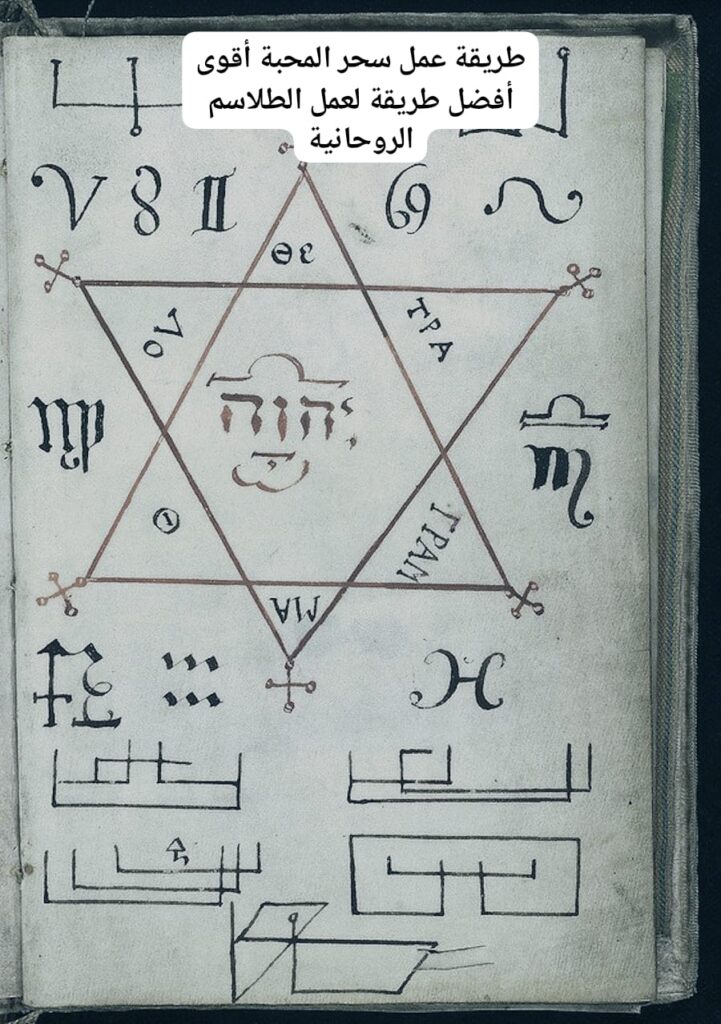 طريقة عمل سحر المحبة أقوى
أفضل طريقة لعمل الطلاسم
الروحانية
♈ ♉ ♊ ♋ ♌
ΘΕ
ΤΡΑ
יהוה
♍
♎
♏
ΓΡΑΜ
ΜΑ
♒ ♓